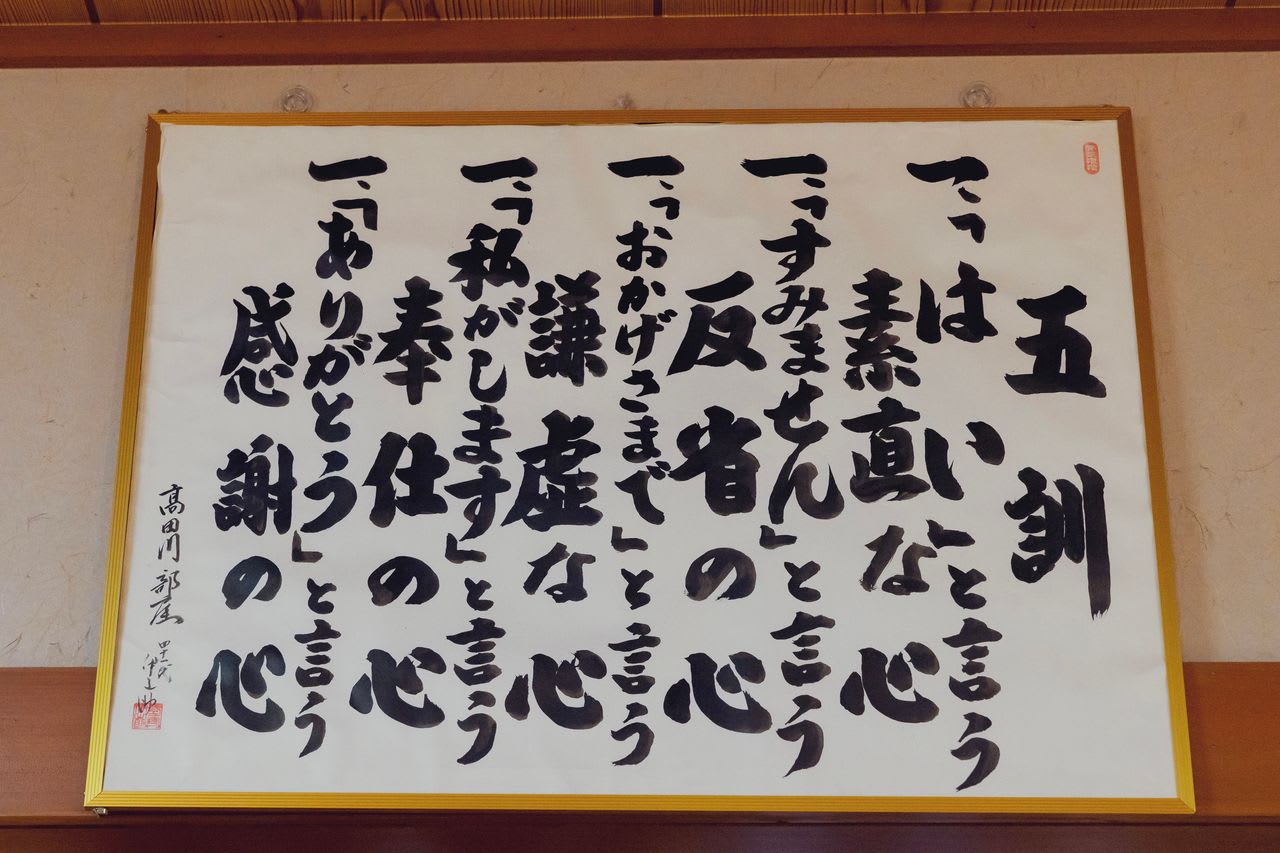 五訓
一、「はい」と言う
素直な心
一、「すみません」と言う
反省の心
一、「おかげさまで」と言う
謙虚な心
一、「私がします」と言う
奉仕の心
一、「ありがとう」と言う
感謝の心
髙田川部屋
伊之助